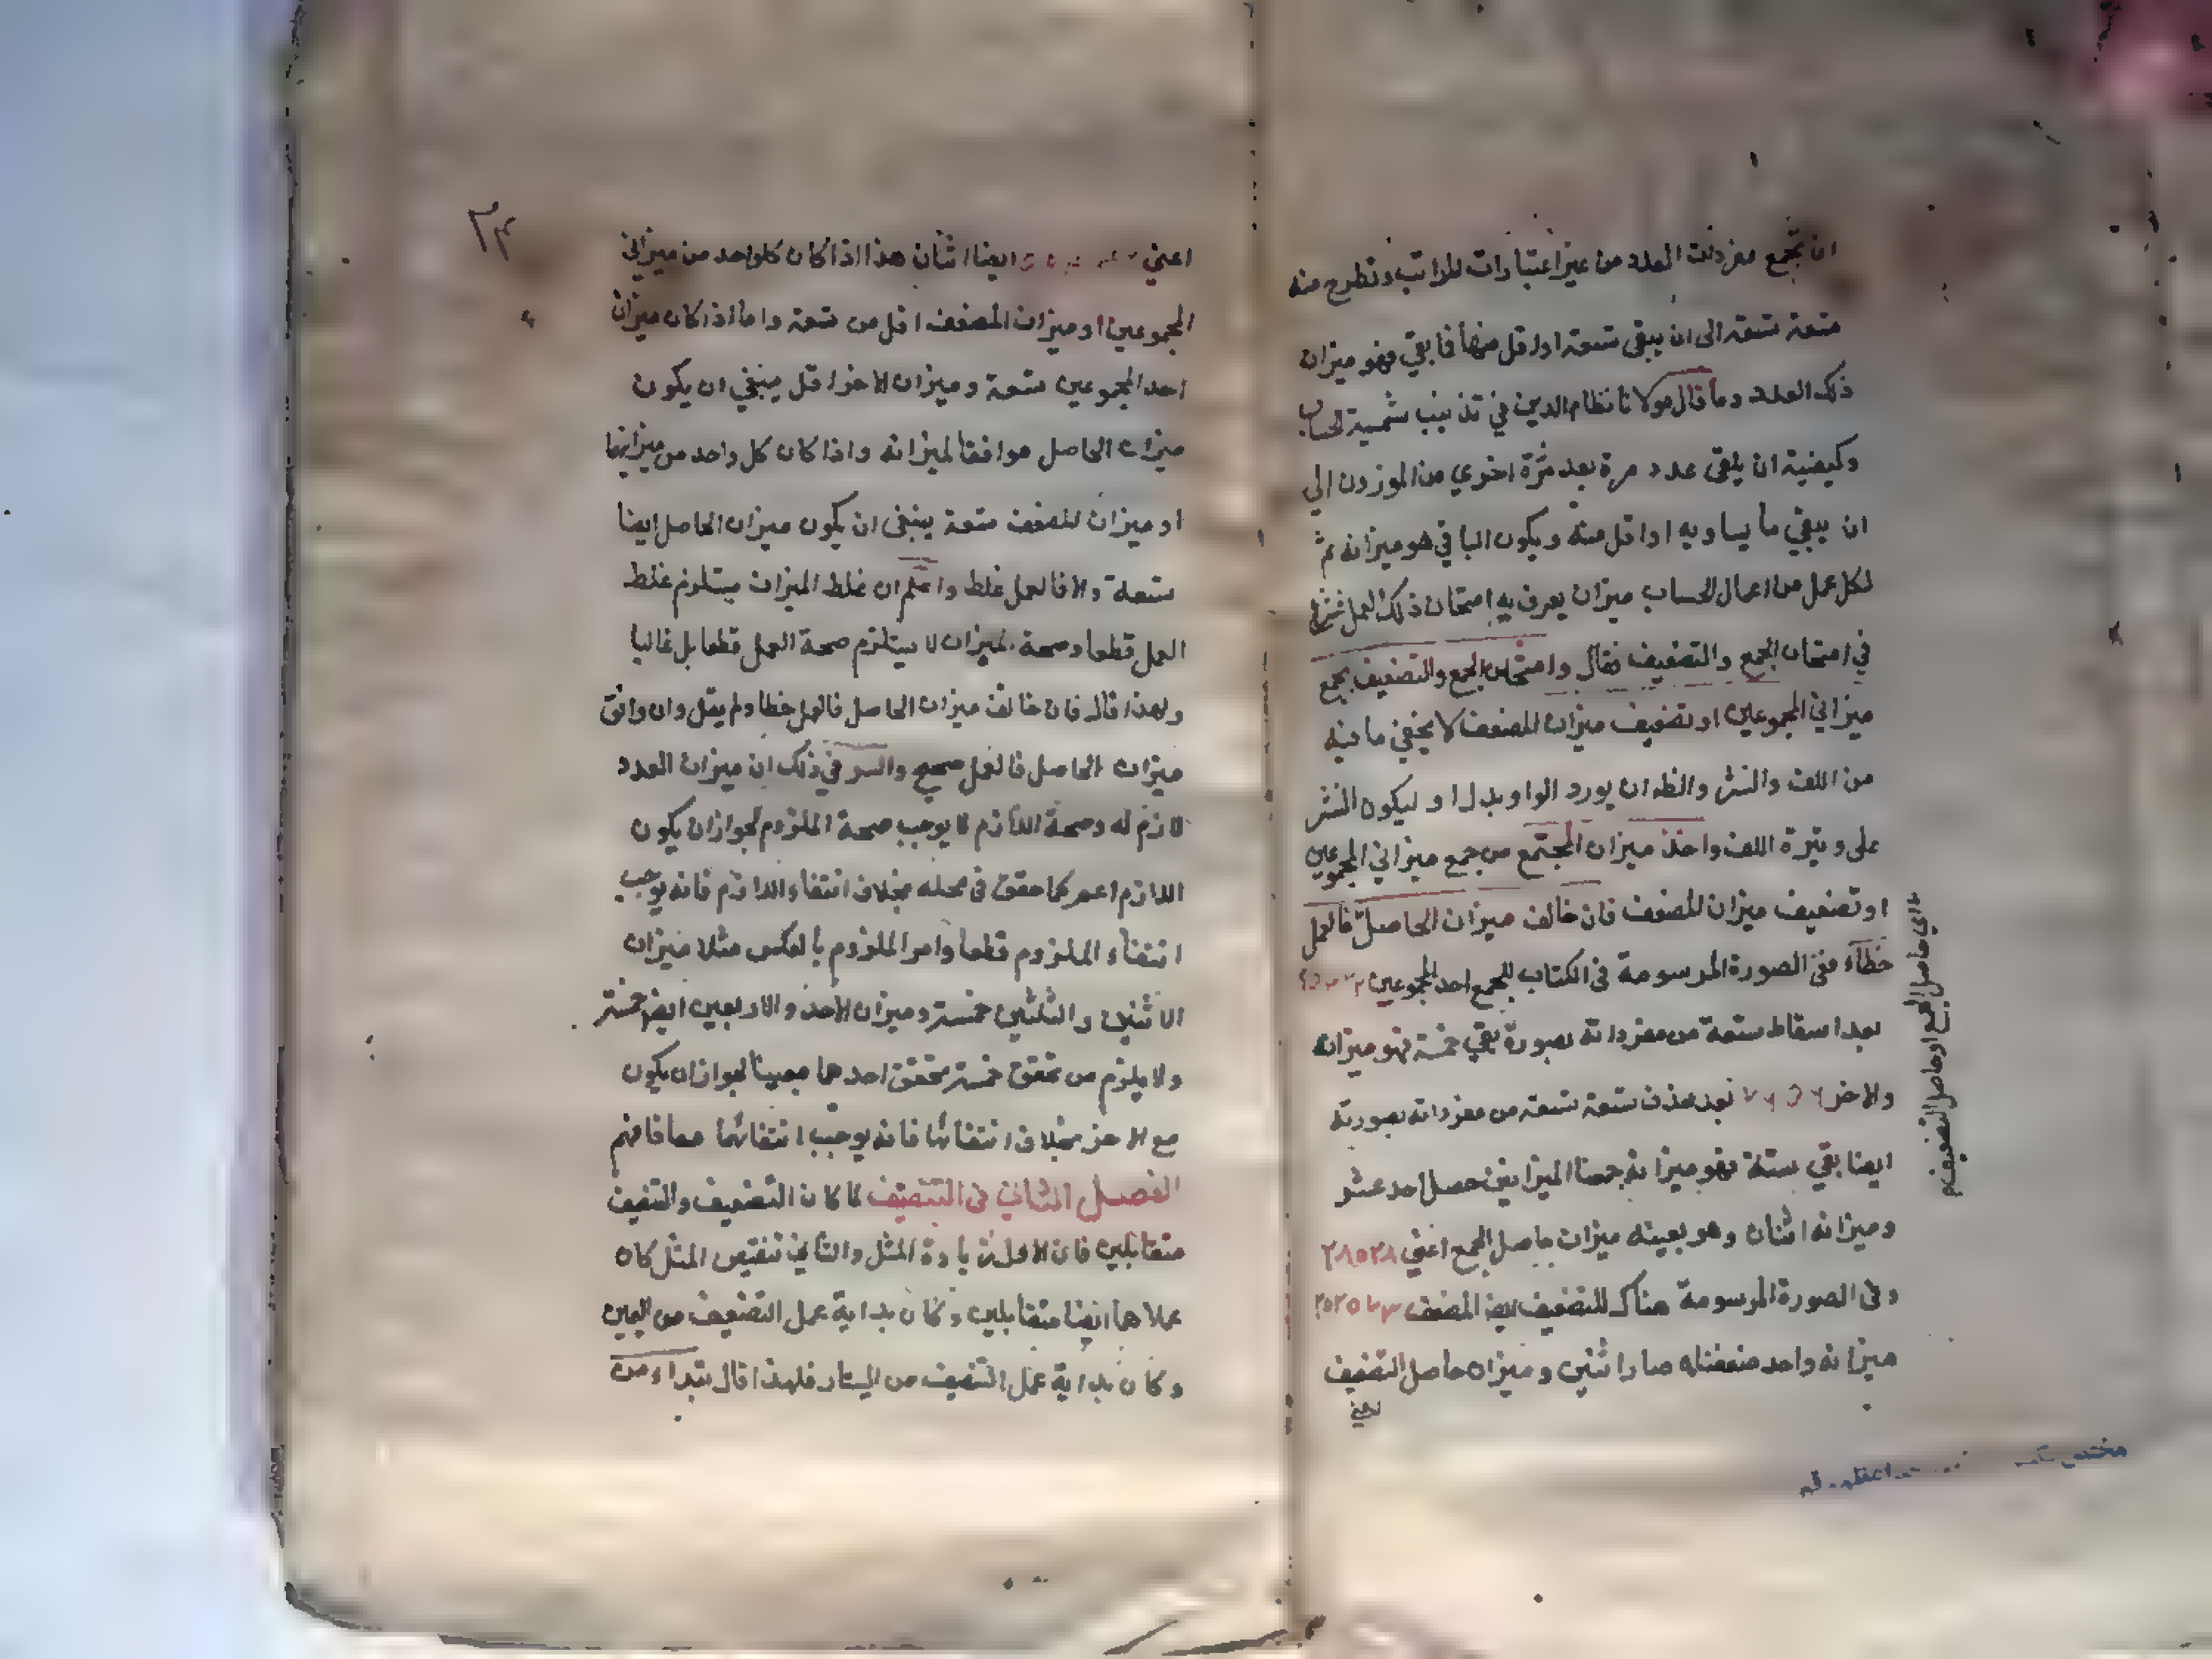 ان تجمع مفردات العدد من غير اعتبارات المراتب وتطرح منه
تسعة تسعة الى ان يبقى تسعة او اقل منها فما بقي فهو ميزان
ذلك العدد وما قال مولانا نظام الدين في تذنيب شمسية الحساب
وكيفيته ان يلقى عدد مرة بعد مرة اخري من الموزون الي
ان يبقي ما يساويه او اقل منه ويكون الباقي هو ميزانه ثم
لكل عمل من اعمال الحساب ميزان يعرف به امتحان ذلك العمل فشرع
في امتحان الجمع والتضعيف فقال وامتحان الجمع والتضعيف بجمع
ميزاني المجموعين او تضعيف ميزان المضعف لا يخفي ما فيه
من اللف والنشر والظ ان يورد الواو بدل او ليكون النشر
على وتيرة اللف واخذ ميزان المجتمع من جمع ميزاني المجموعين
او تضعيف ميزان المضعف فان خالف ميزان الحاصل فالعمل
خطاء ففي الصورة المرسومة في الكتاب للجمع احد المجموعين
بعد اسقاط تسعة من مفرداته بصورة بقي خمسة فهو ميزانه
والاخر بعد حذف تسعة تسعة من مفرداته بصورته
ايضا بقي ستة فهو ميزانه جمعنا الميزانين حصل احد عشر
وميزانه اثنان وهو بعينه ميزان حاصل الجمع اعني ٢٨٥٢٨
وفى الصورة المرسومة هناك للتضعيف ايضا المضعف ٢٥٢٥٧٣
ميزانه واحد ضعفناه صار اثنين وميزان حاصل التضعيف
اعني
اي حاصل الجمع او حاصل التضعيف م
٢٣
اعني ايضا اثنان هذا اذا كان كل واحد من ميزاني
المجموعين او ميزان المضعف اقل من تسعة واما اذا كان ميزان
احد المجموعين تسعة وميزان الاخر اقل ينبغي ان يكون
ميزان الحاصل موافقا لميزانه واذا كان كل واحد من ميزانيهما
او ميزان المضعف تسعة ينبغى ان يكون ميزان الحاصل ايضا
تسعة والا فالعمل غلط واعلم ان غلط الميزان يستلزم غلط
العمل قطعا وصحة الميزان لا يستلزم صحة العمل قطعا بل غالبا
ولهذا قال فان خالف ميزان الحاصل فالعمل خطا ولم يقل وان وافق
ميزان الحاصل فالعمل صحيح والسر في ذلك ان ميزان العدد
لازم له وصحة اللازم لا يوجب صحة الملزوم لجواز ان يكون
اللازم اعم كما حقق في محله بخلاف انتفاء اللازم فانه يوجب
انتفاء الملزوم قطعا وامر الملزوم بالعكس مثلا ميزان
الاثنين والثلثين خمسة وميزان الاحد والاربعين ايضا خمسة
ولا يلزم من تحقق خمسة تحقق احدهما معينا لجواز ان يكون
مع الاخر بخلاف انتفائها فانه يوجب انتفائهما معا فافهم
الفصل الثاني في التنصيف لما كان التضعيف والتنصيف
متقابلين فان الاول زيادة المثل والثاني تنقيص المثل كان
عملاهما ايضا متقابلين وكان بداية عمل التضعيف من اليمين
وكان بداية عمل التنصيف من اليسار فلهذا قال تبداء من